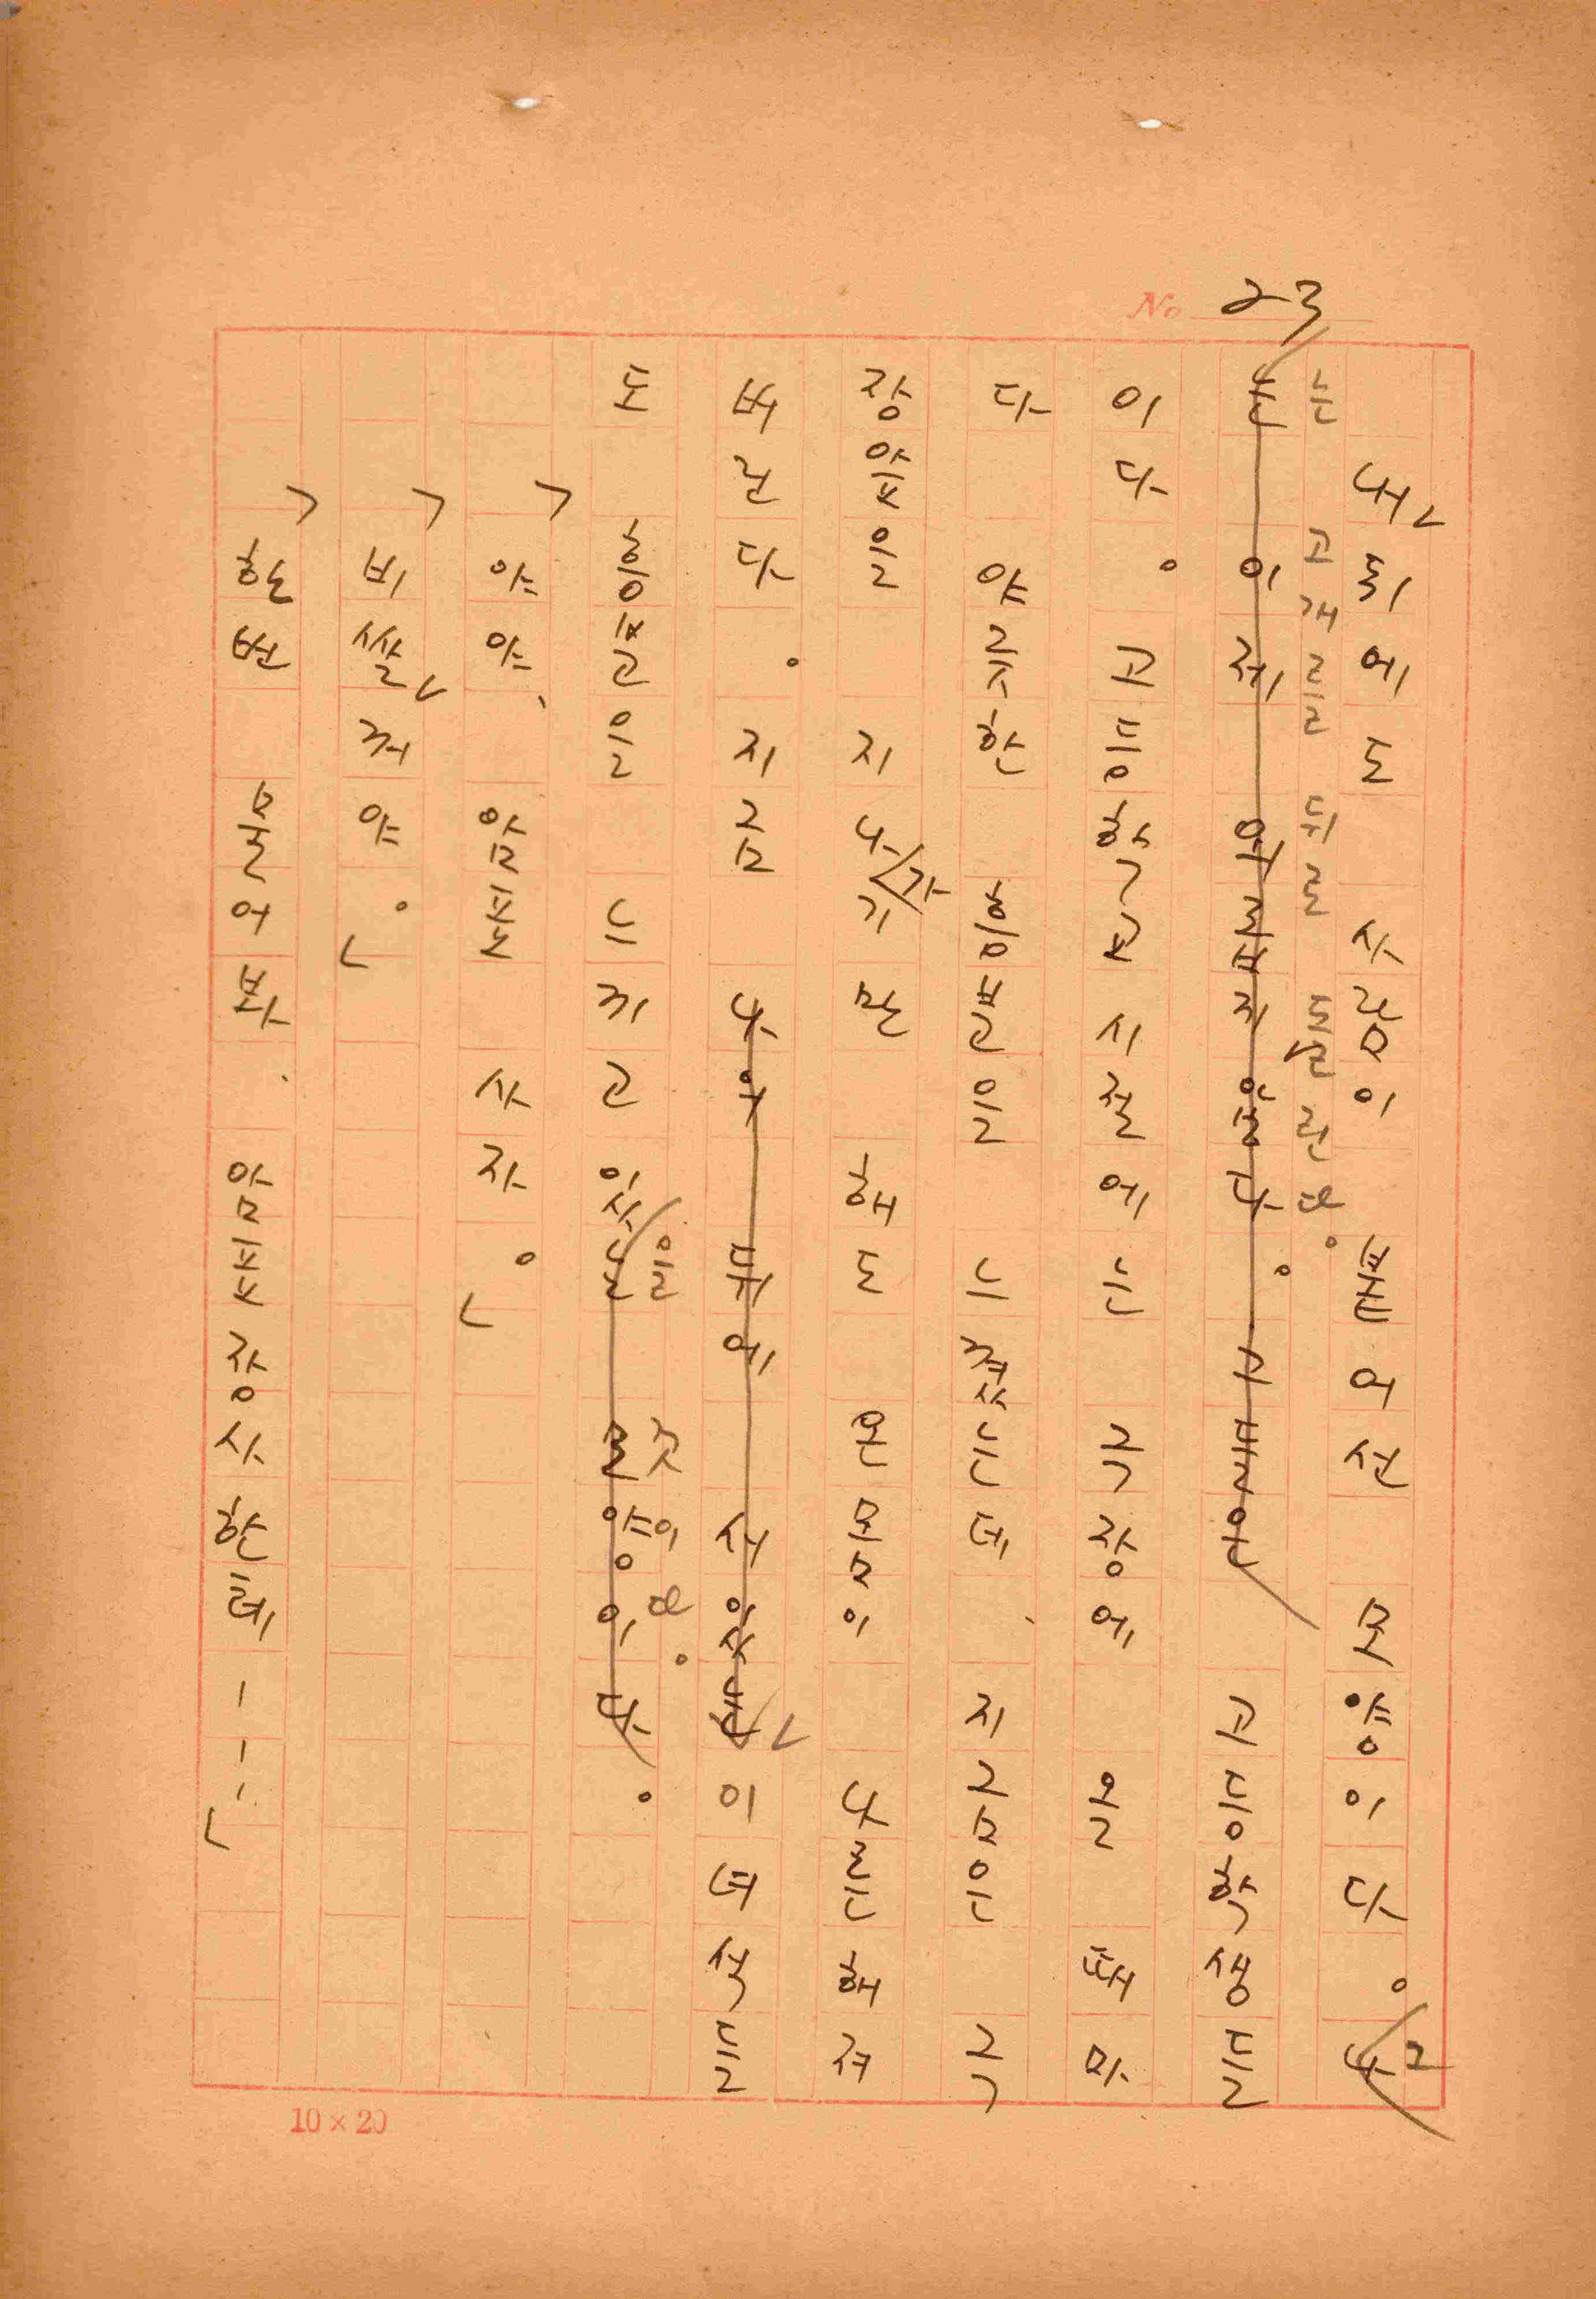 No. 23
내 뒤에도 사람이 어선 모양이다. 나
는 고개를 뒤로 돌린다.
는 이제 않다. 고등학생들
이다. 고등학교 시절에는 극장에 올 때마
다 야릇한 흥분을 느꼈는데, 지금은 극
장앞을 지나가기만 해도 온몸이 나른해져
버린다. 지금 나의 뒤에 서있는 이 녀석들
을 것이다.
도 흥분을 느끼고 있는 모양이다.
「야야, 암표 사자.」
「비쌀 거야.」
「한번 물어봐, 암표장사한테---」
10×20